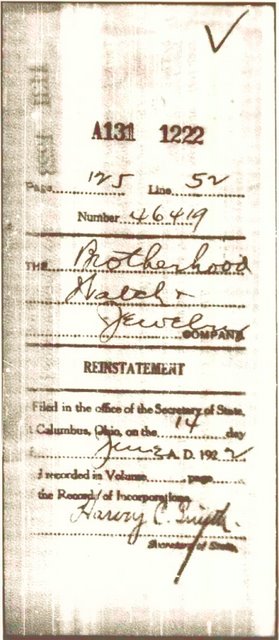 A131 1222
Page 125 Line 52
Number 46419
THE Brotherhood
Watch &
Jewelry COMPANY
REINSTATEMENT
Filed in the office of the Secretary of State,
Columbus, Ohio, on the 14 day
June A. D. 1922
recorded in Volume page
the Record of Incorporations.
Harvey C. Smith.
Secretary of State.